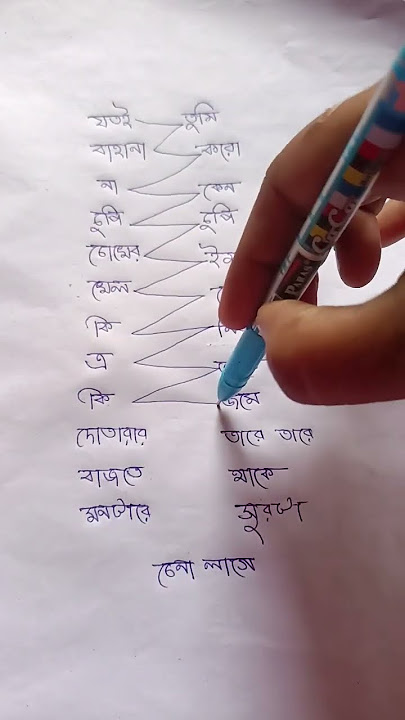 যতই তুমি
বাহানা করো
না কেন
চুপি চুপি
চোখের
খেল
কি
এ
কি জমে
দোতারার তারে তারে
বাজতে থাকে
মনটারে সুরটা
চেনা লাগে